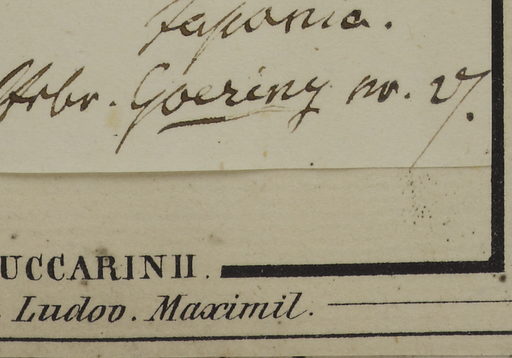 Japonia.
Goering nr. 27.
UCCARINII.
Ludov. Maximil.